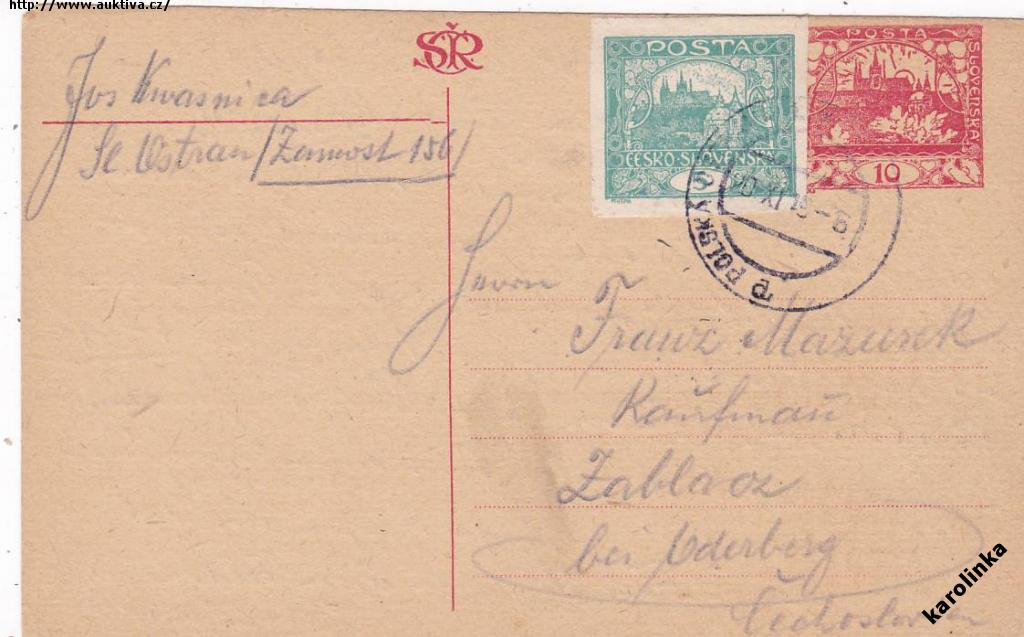 http://www.auktiva.cz/
SČR
Jos Kwasnica
Sl Ostrau/Zamost 156/
POSTA
ČESKO-SLOVENSK
POSTA
SLOVENSKÁ
10
POLSK
Herrn
Franz Mazurek
Kaufmaň
Zablacz
bei Oderberg
Čechoslov
karolinka